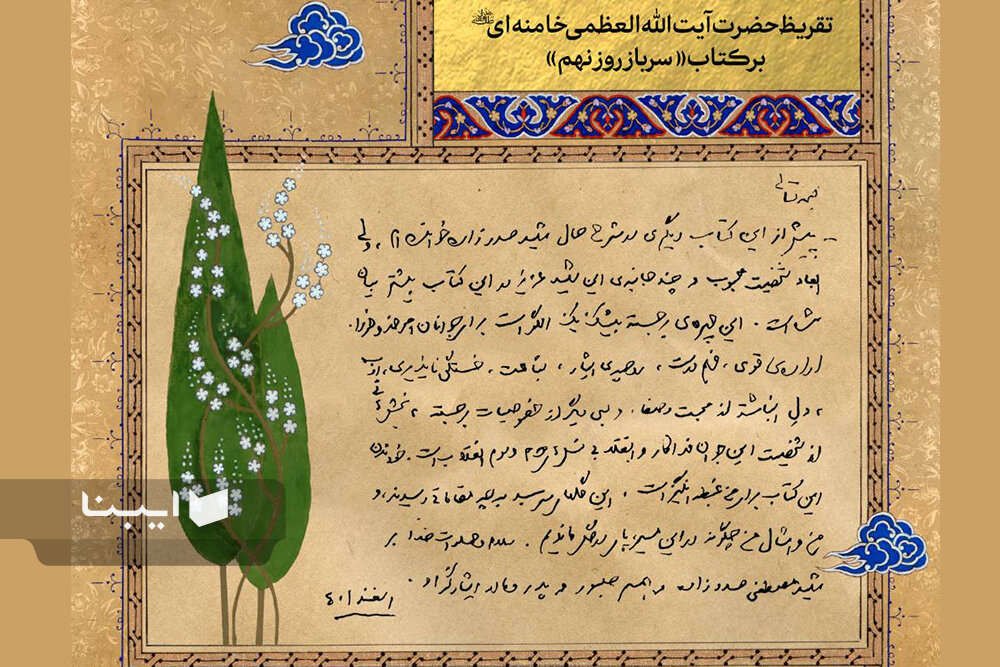 تقریظ حضرت آیت الله العظمی خامنه ای
بر کتاب «سرباز روز نهم»
بسمه تعالی
پیش از این کتاب دیگری در شرح حال شهید صدرزاده خوانده‌ام، ولی
ابعاد شخصیت محبوب و چند جانبه‌ی این شهید عزیز در این کتاب بیشتر بیان
شده است. این چهره‌ی برجسته بیشک یک الگو است برای جوانان امروز و فردا.
اراده‌ی قوی، فهم درست، روحیه‌ی ایثار، شجاعت، خستگی‌ناپذیری، ادب
، دل انباشته از محبت و صفا، و بسی دیگر از خصوصیات برجسته، بخشی
از شخصیت این جوان فداکار و انقلابی نسل سوم انقلاب است. خواندن
این کتاب برای من غبطه‌انگیز است. این گلهای سرسبد به چه مقاماتی رسیدند، و
من و امثال من چگونه در این مسیر پای در گل ماندیم. سلام و صلوات خدا بر
شهید مصطفی صدرزاده و همسر صبور و پدر و مادر ایثارگر او.
اسفند ۴۰۱
ایبنا